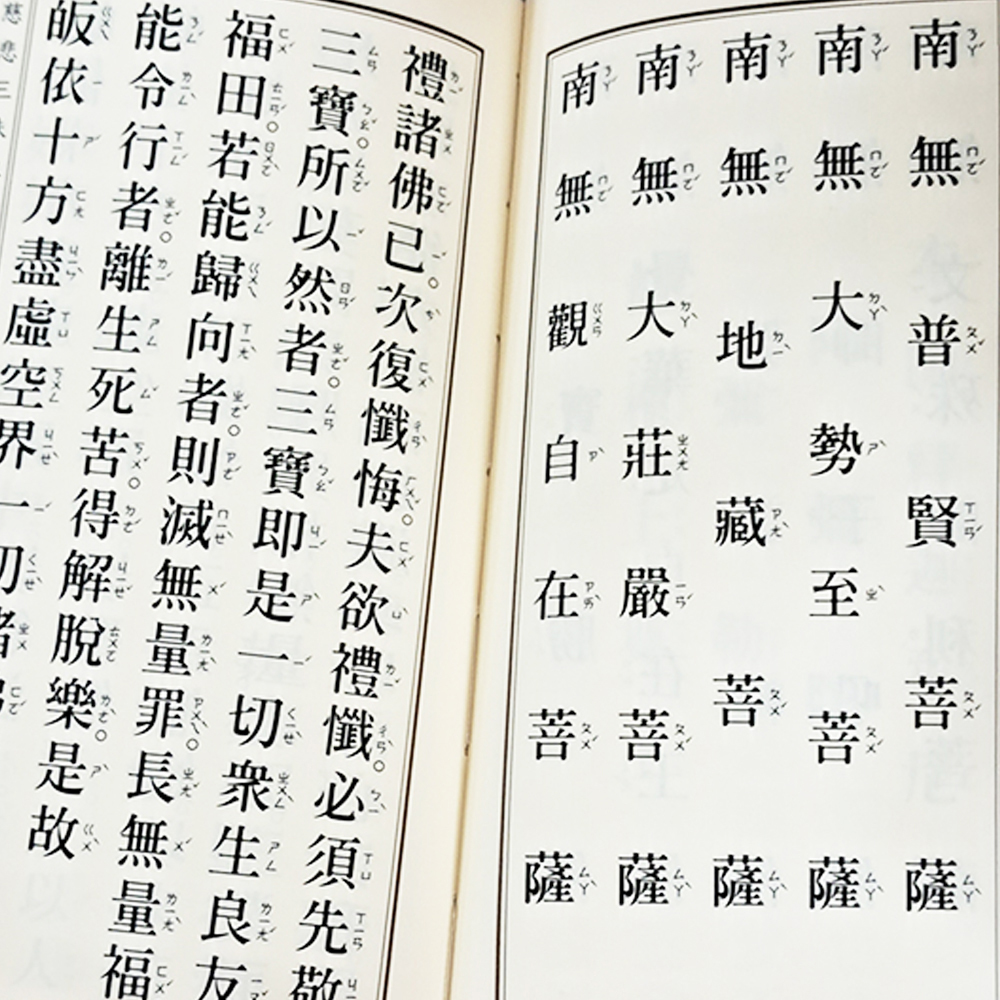 南無普賢菩薩
南無大勢至菩薩
南無地藏菩薩
南無大莊嚴菩薩
南無觀自在菩薩
禮諸佛已。次復懺悔。夫欲禮懺。必須先敬
三寶。所以然者。三寶即是一切衆生良友
福田。若能歸向者。則滅無量罪。長無量福
能令行者。離生死苦。得解脫樂。是故
皈依十方盡虛空界一切諸
慈悲三